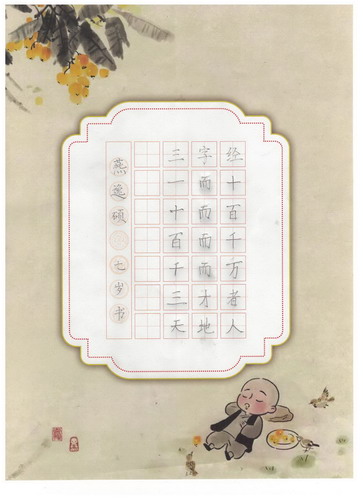 三字经
一而十
十而百
百而千
千而万
三才者
天地人
燕逸硕 七岁书